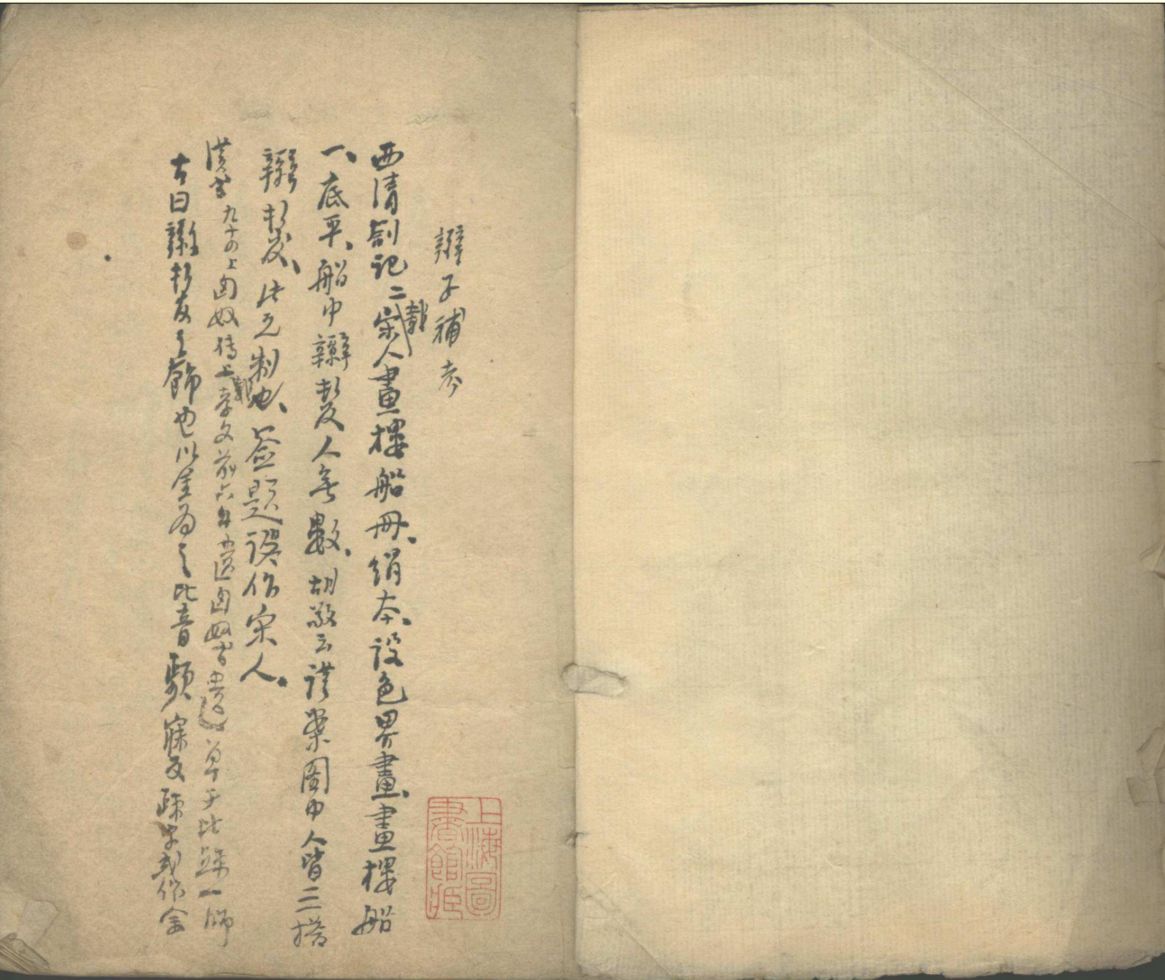 辮子補考
西清劄記二載宋人畫樓船冊、絹本、設色界畫、畫樓船
一、底平、船中辮髮人無數、胡敬云謹案圖中人皆三搭
辮髮、此元制也、簽題誤作宋人。
漢書九十四上匈奴傳上孝文前六年遺匈奴書遺單于比疎一師
古曰辮髮之飾也以金為之比音頻寐反疎字或作余
上海圖書館藏